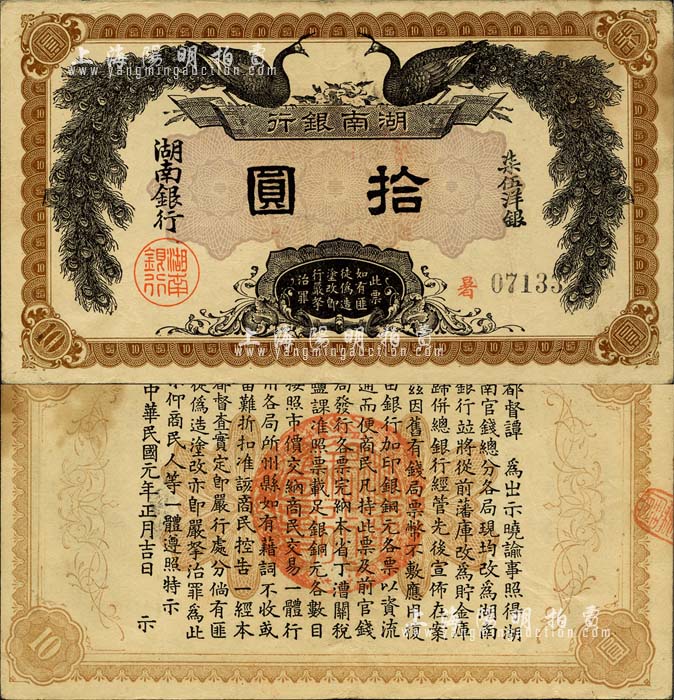 上海陽明拍賣
www.yangmingauction.com
行銀南湖
圓 拾
柒伍洋銀
湖南銀行
湖南銀行
此票
如有匪
徒偽造
塗改即
行嚴拏
治罪
暑 07133
10
圓
上海陽明拍賣
www.yangmingauction.com
都督譚 為出示曉諭事照得湖
南官錢總分各局現均改為湖南
銀行並將從前藩庫改為貯金庫
歸併總銀行經管先後宣佈在案
茲因舊有錢局票幣不敷應用復
由銀行加印銀銅元各票以資流
通而便商民凡持此票及前官錢
局發行各票完納本省丁漕關稅
鹽課准照票載足銀銅元各數目
按照市價交納商民交易一體行
用各局所州縣如有藉詞不收或
留難折扣准該商民控告一經本
都督查實定即嚴行處分倘有匪
徒偽造塗改亦即嚴拏治罪為此
示仰商民人等一體遵照特示
中華民國元年正月吉日 示
10
圓
上海陽明拍賣
www.yangmingauction.com